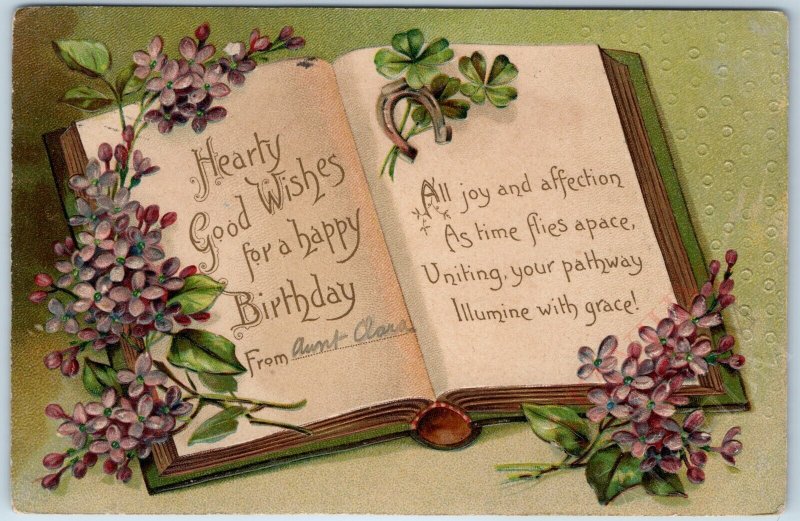 Hearty
Good Wishes
for a happy
Birthday
From Aunt Clara.
All joy and affection
As time flies apace,
Uniting, your pathway
Illumine with grace!